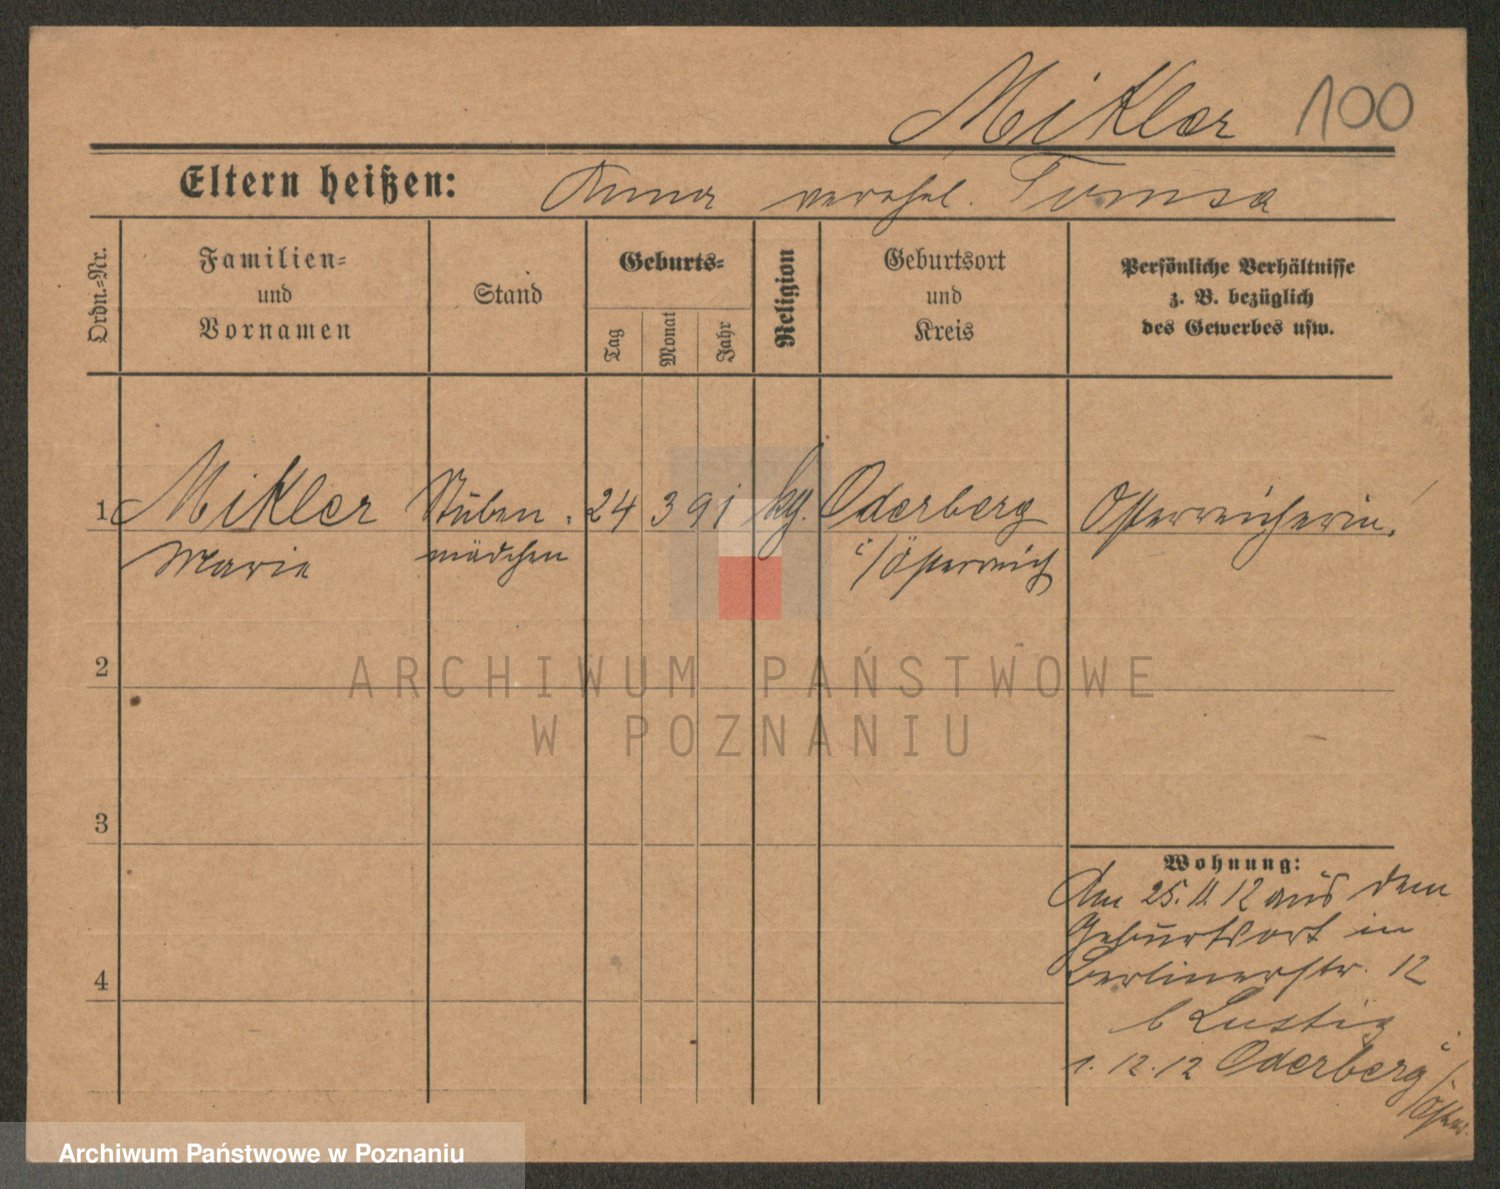 Mikler 100
Eltern heißen: Anna verehel. Tomsa
Ordn.=Nr.
Familien=
und
Vornamen
Stand
Geburts=
Tag
Monat
Jahr
Religion
Geburtsort
und
Kreis
Persönliche Verhältnisse
z. B. bezüglich
des Gewerbes usw.
1 Mikler Stuben- 24 3 91 kg. Oderberg Österreicherin.
Marie mädchen i/Österreich
2
ARCHIWUM PAŃSTWOWE
W POZNANIU
3
Wohnung:
Am 25.11.12 aus dem
Geburtsort in
Berlinerstr. 12
b Lustig
4
1.12.12 Oderberg i/Österr.
Archiwum Państwowe w Poznaniu